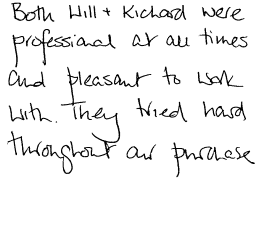 Both Will + Richard were
professional at all times
and pleasant to work
with. They tried hard
throughout our purchase